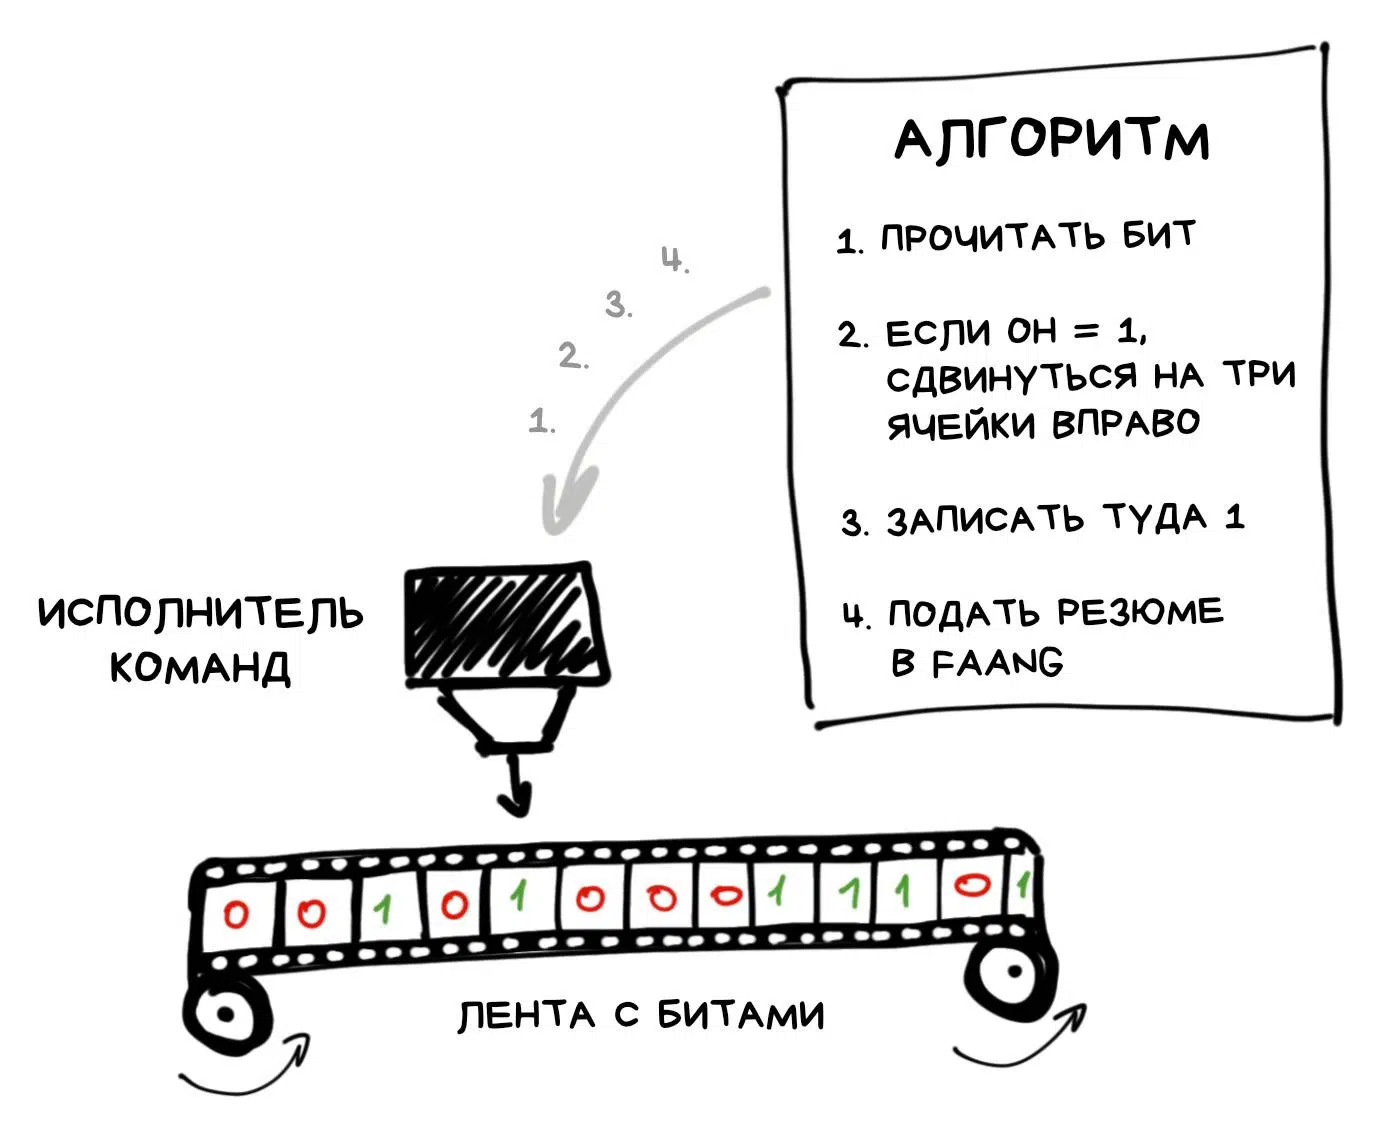 АЛГОРИТМ
1. ПРОЧИТАТЬ БИТ
2. ЕСЛИ ОН = 1,
СДВИНУТЬСЯ НА ТРИ
ЯЧЕЙКИ ВПРАВО
3. ЗАПИСАТЬ ТУДА 1
4. ПОДАТЬ РЕЗЮМЕ
В FAANG
4.
3.
2.
1.
ИСПОЛНИТЕЛЬ
КОМАНД
0 0 1 0 1 0 0 0 1 1 1 0 1
ЛЕНТА С БИТАМИ